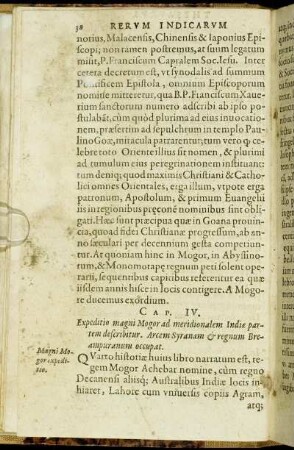 38 RERVM INDICARVM
norius, Malacensis, Chinensis & Iaponius Epi-
scopi; non tamen postremus, at suum legatum
misit, P. Franciscum Capralem Soc. Iesu. Inter
cetera decretum est, vt synodalis ad summum
Pontificem Epistola, omnium Episcoporum
nomine mitteretur, qua B. P. Franciscum Xaue-
rium sanctorum numero adscribi ab ipso po-
stulabāt, cùm quòd plurima ad eius inuocatio-
nem, præsertim ad sepulchrum in templo Pau-
lino Goæ, miracula patrarentur; tum verò q; ce-
lebre toto Oriente illius sit nomen, & plurimi
ad tumulum eius peregrinationem instituant:
tum deniq; quod maximis Christiani & Catho-
lici omnes Orientales, erga illum, vt pote erga
patronum, Apostolum, & primum Euangelij
in is regionibus preçonē nominibus sint obli-
gati. Hæc sunt præcipua quæ in Goana prouin-
cia, quoad fidei Christianæ progressum, ab an-
no sæculari per decennium gesta competiun-
tur. At quoniam hinc in Mogor, in Abyssino-
rum, & Monomotapæ regnum peti solent ope-
rarij, sequentibus capitibus referentur ea quæ
iisdem annis hisce in locis contigere. A Mogo-
re ducemus exordium.
CAP. IV.
Expeditio magni Mogor ad meridionalem Indiæ par-
tem describitur. Arcem Syranam & regnum Bre-
ampuranum occupat.
Magni Mo-
gor expedi-
tio.
QVarto historiæ huius libro narratum est, re-
gem Mogor Achebar nomine, cùm regno
Decanensi aliisq; Australibus Indiæ locis in-
hiaret, Lahore cum vniuersis copiis Agram,
atq;